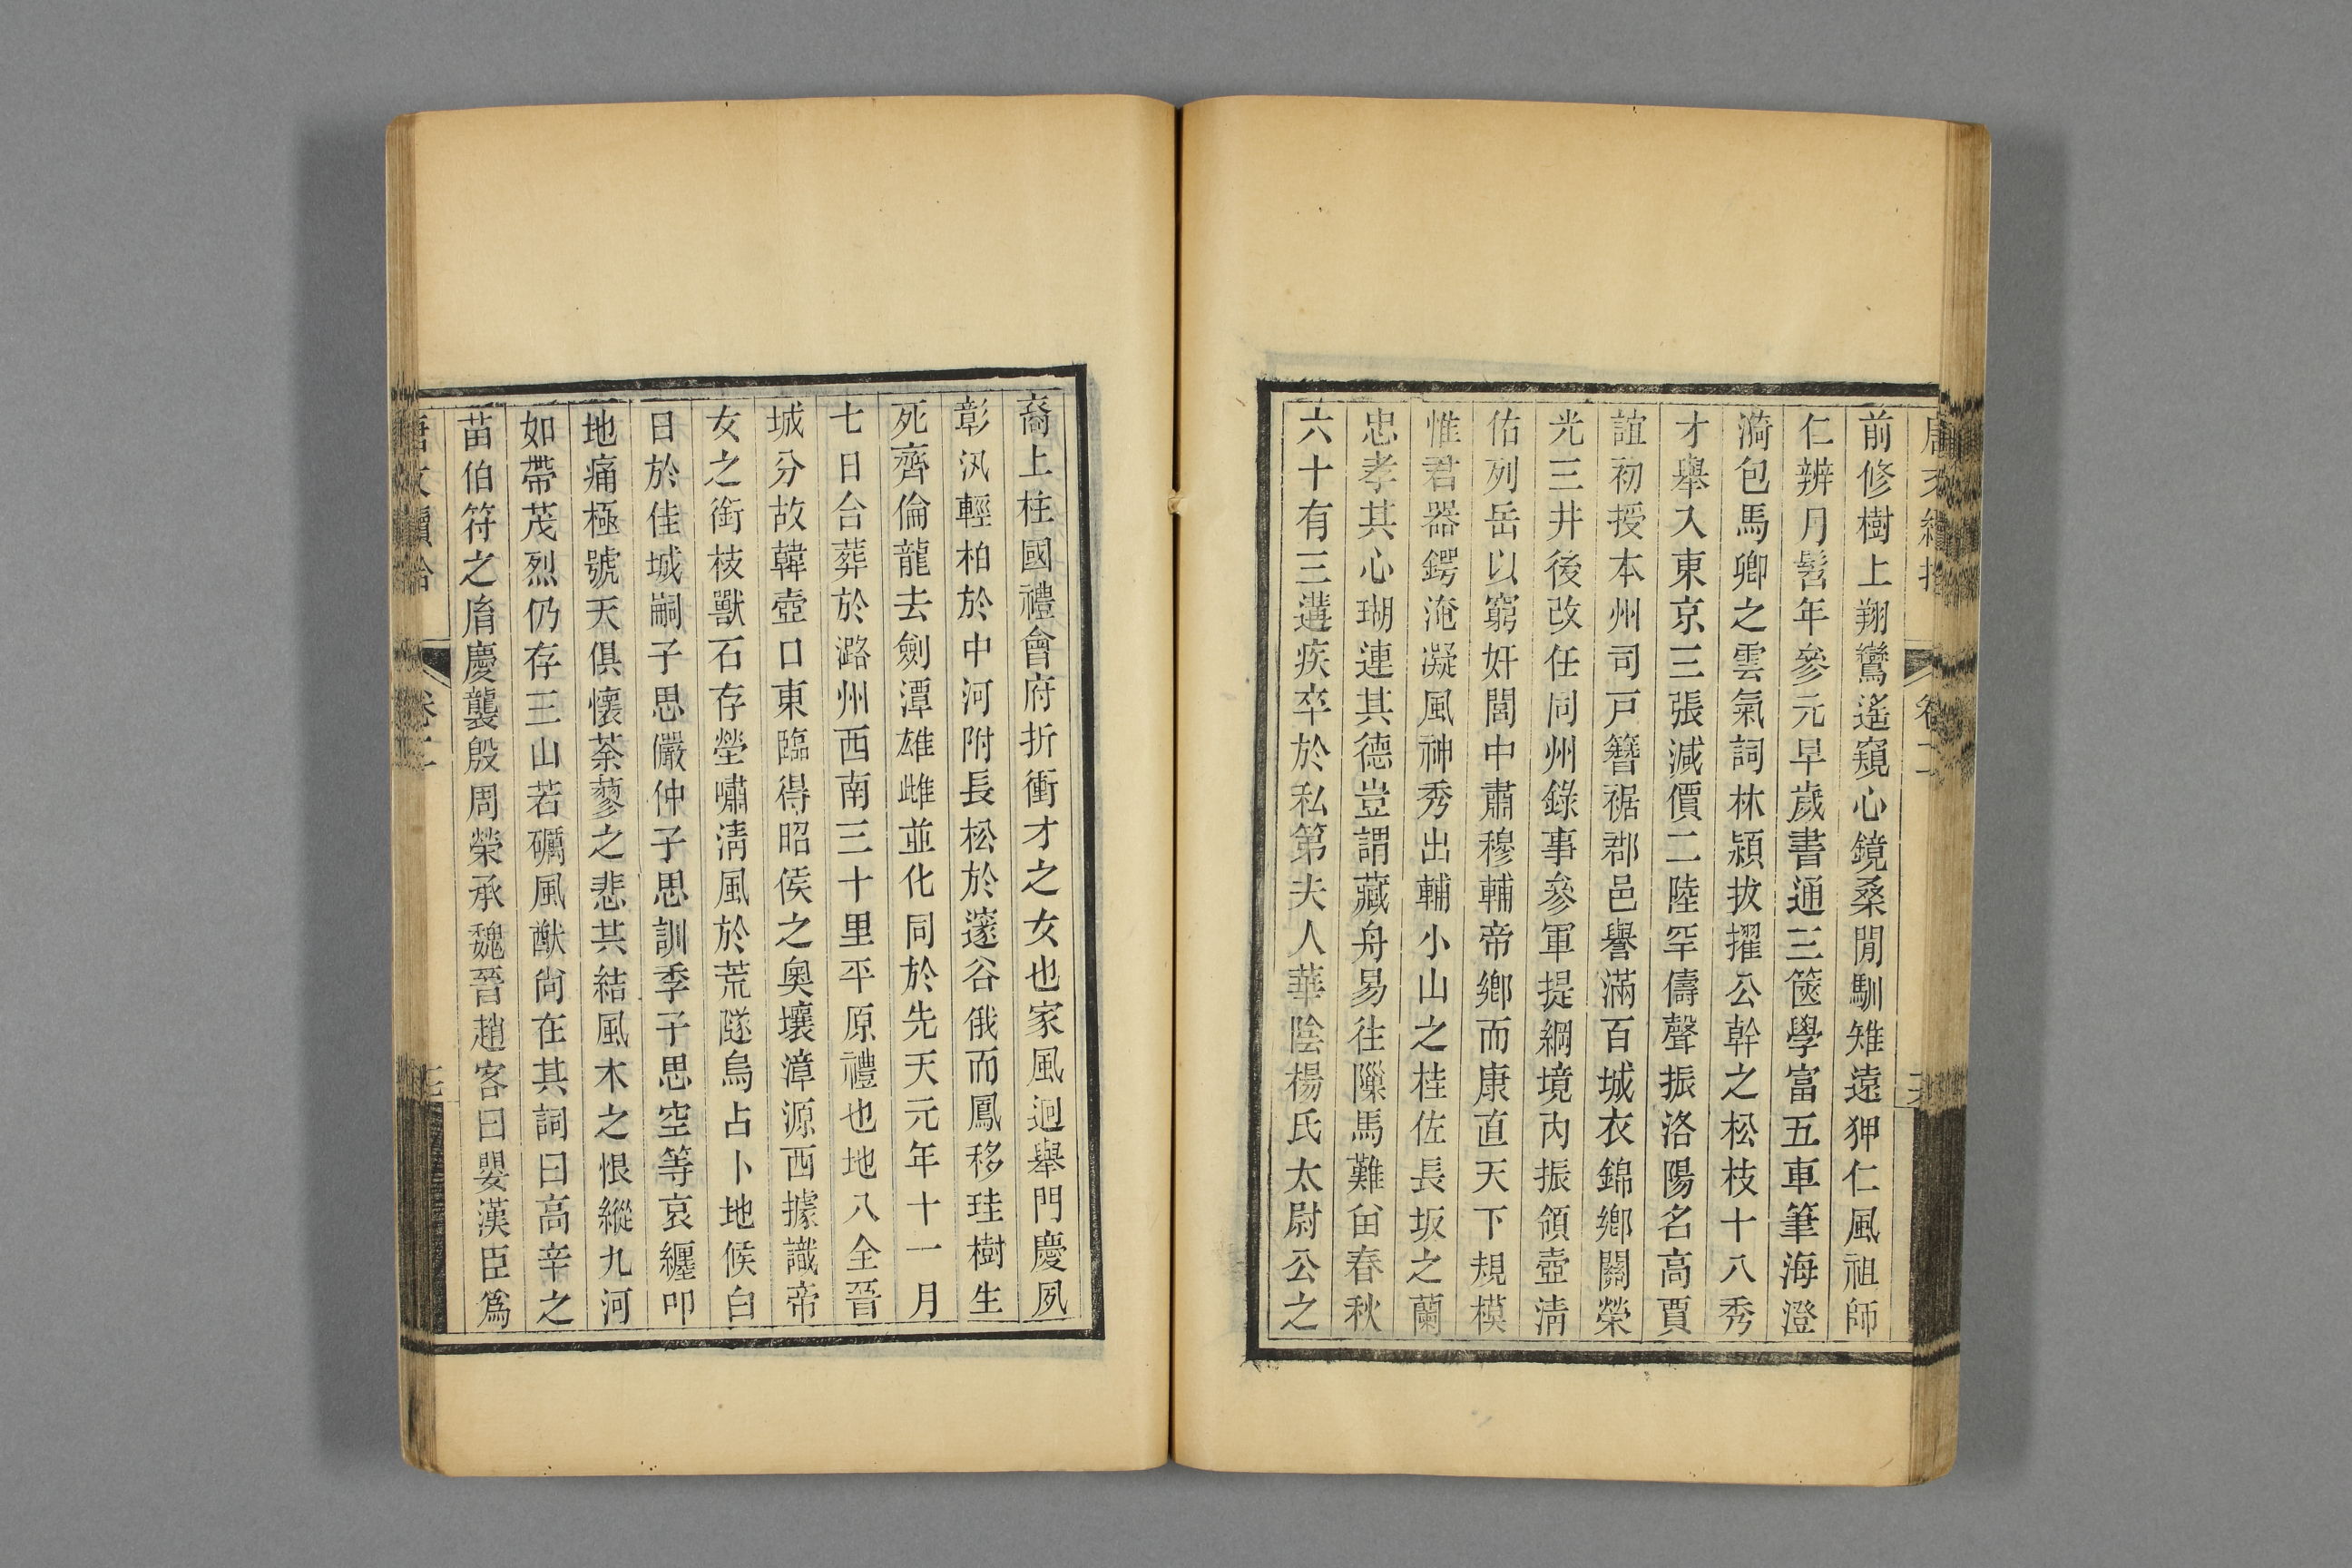 前修樹上翔鸞遙窺心鏡桑閒馴雉遠狎仁風祖師
仁辨月髫年參元早歲書通三篋學富五車筆海澄
漪包馬卿之雲氣詞林潁拔擢公幹之松枝十八秀
才舉入東京三張減價二陸罕儔聲振洛陽名高賈
誼初授本州司戸簪裾郡邑譽滿百城衣錦鄉關榮
光三井後改任同州錄事參軍提綱境內振領壺清
佑列岳以窮奸閭中肅穆輔帝鄉而康直天下規模
惟君器鍔淹凝風神秀出輔小山之桂佐長坂之蘭
忠孝其心瑚連其德豈謂藏舟易往隟馬難留春秋
六十有三遘疾卒於私第夫人華陰楊氏太尉公之
裔上柱國禮會府折衝才之女也家風迥舉門慶夙
彰汎輕柏於中河附長松於邃谷俄而鳳移珪樹生
死齊倫龍去劍潭雄雌並化同於先天元年十一月
七日合葬於潞州西南三十里平原禮也地入全晉
城分故韓壺口東臨得昭侯之奧壤漳源西據識帝
女之銜枝獸石存塋嘯清風於荒隧烏占卜地候白
日於佳城嗣子思儼仲子思訓季子思空等哀纏叩
地痛極號天俱懷荼蓼之悲共結風木之恨縱九河
如帶茂烈仍存三山若礪風猷尙在其詞曰高辛之
苗伯符之胤慶襲殷周榮承魏晉趙客曰嬰漢臣爲
唐文續拾
卷二